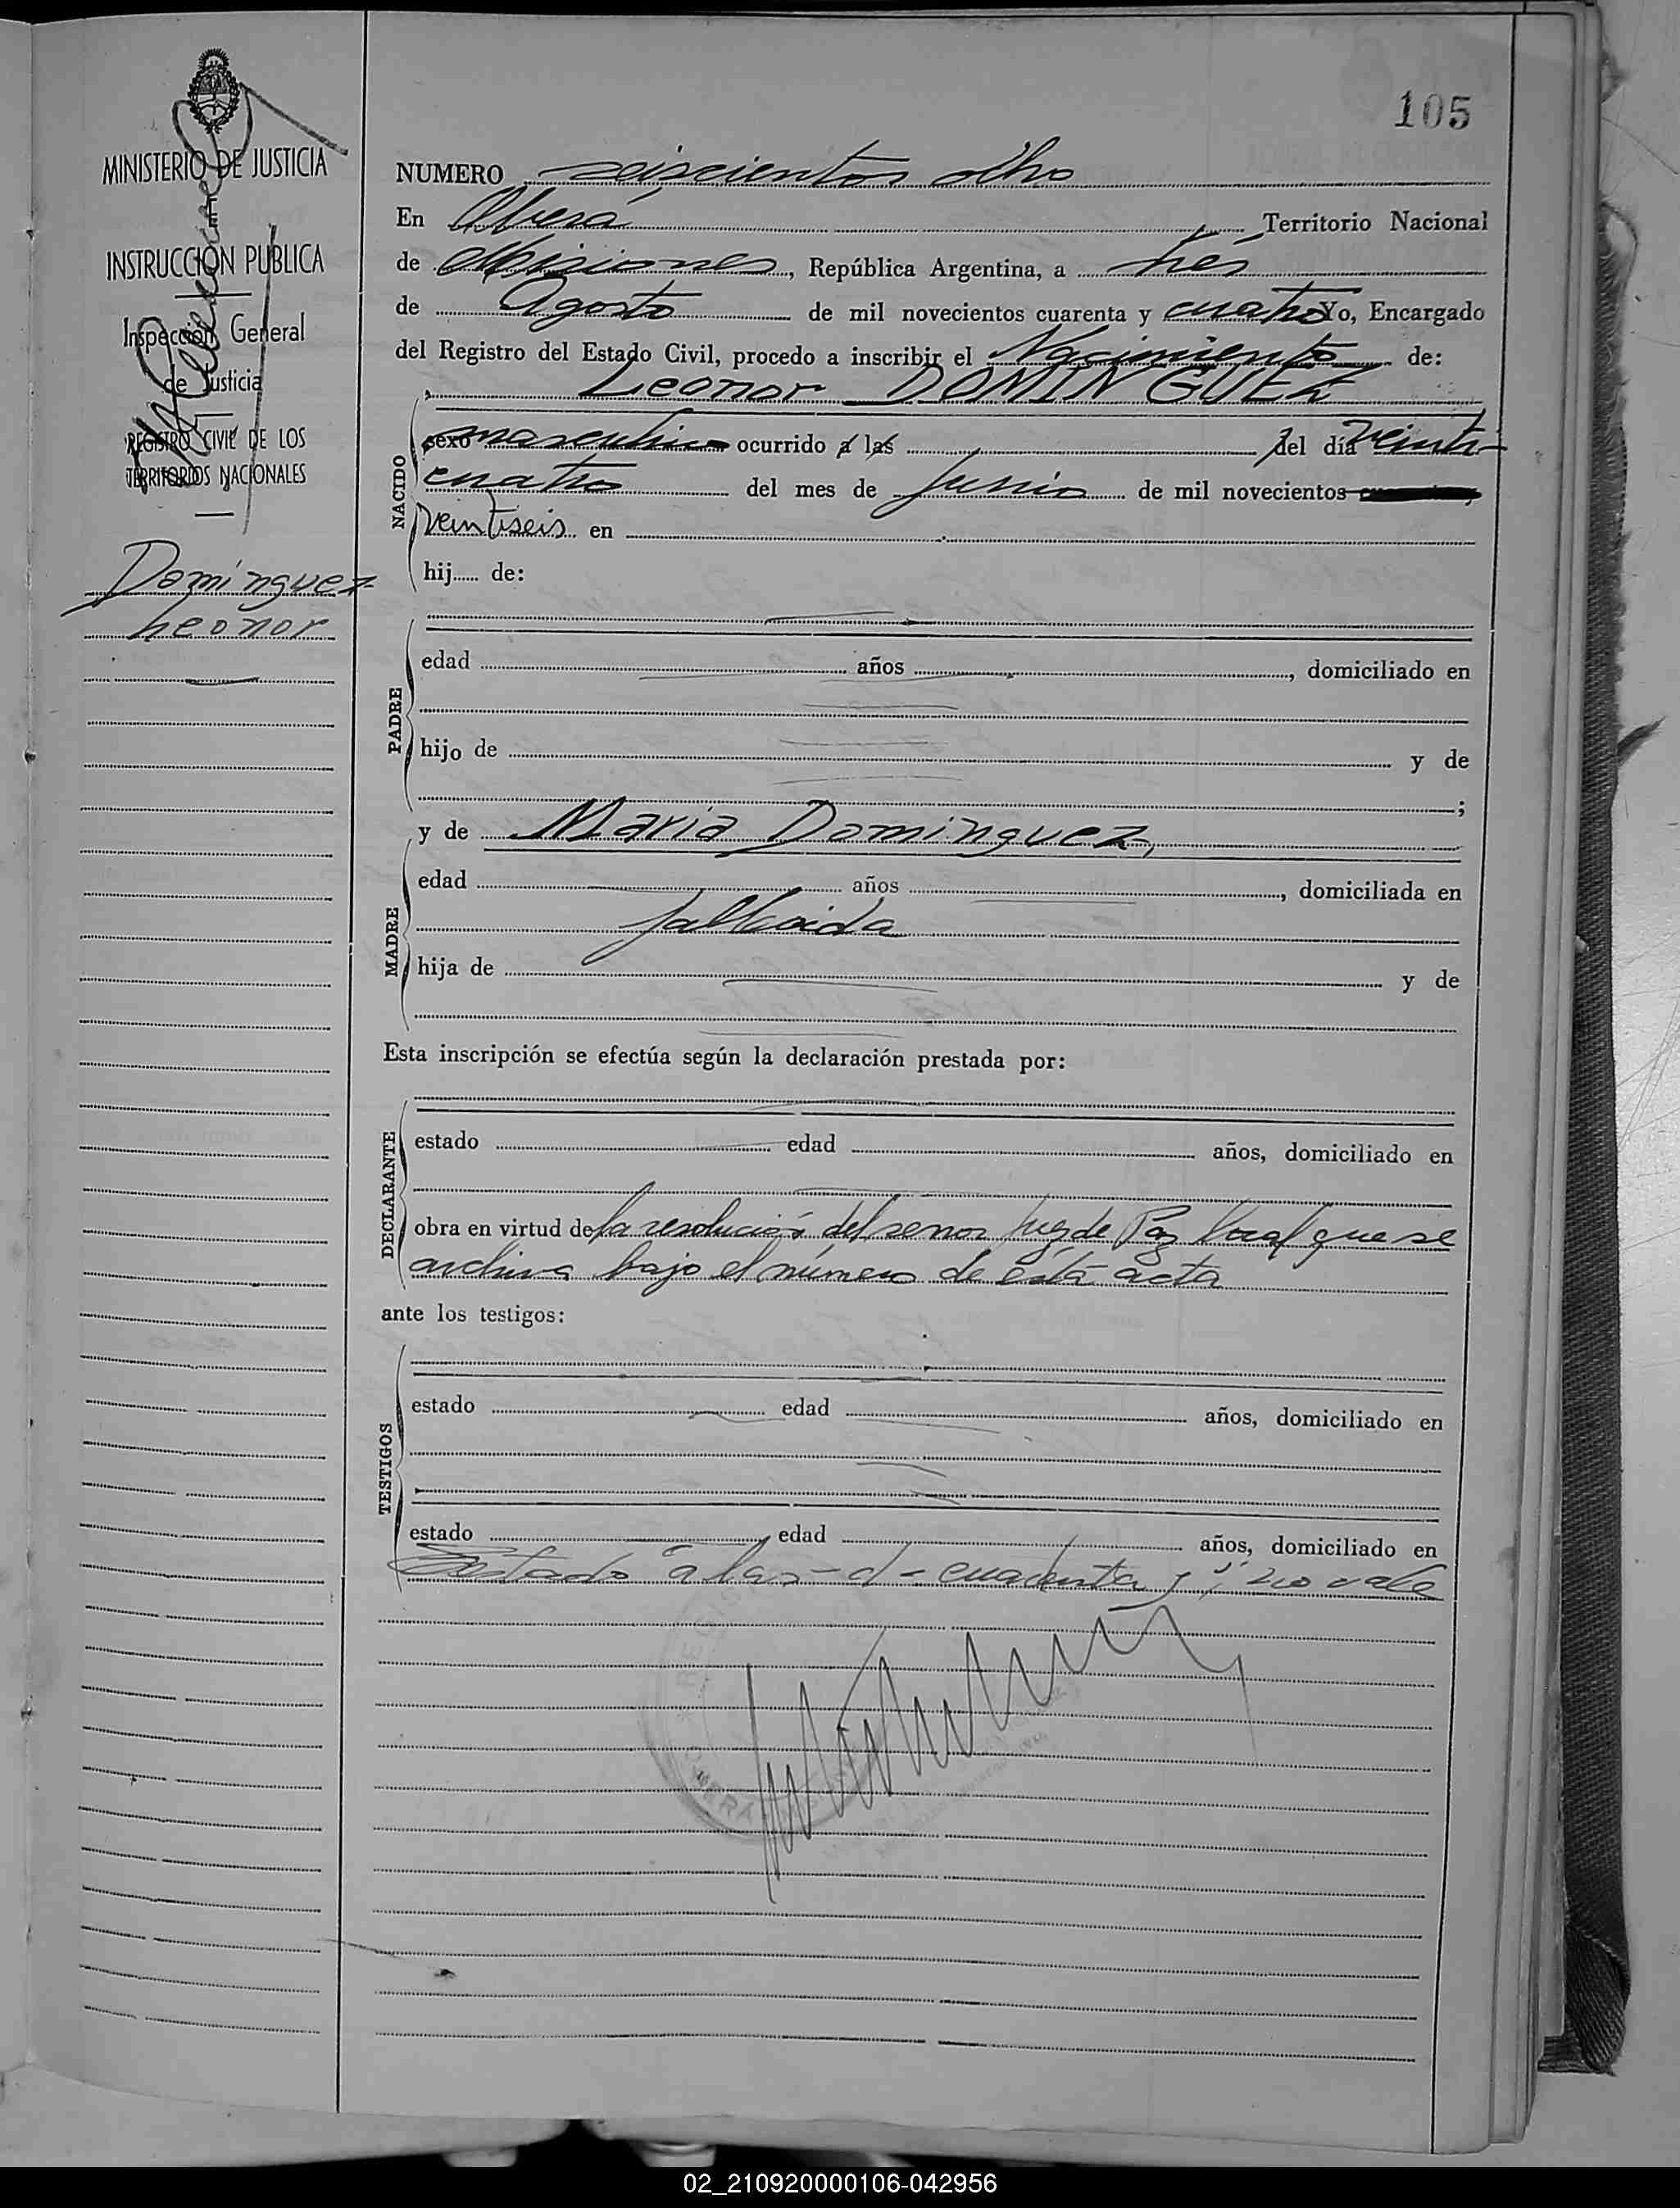 105
MINISTERIO DE JUSTICIA
E
INSTRUCCION PUBLICA
Inspección General
de Justicia
REGISTRO CIVIL DE LOS
TERRITORIOS NACIONALES
Dominguez
Leonor
NUMERO seiscientos ocho
En Oberá Territorio Nacional
de Misiones, República Argentina, a tres
de Agosto de mil novecientos cuarenta y cuatro Yo, Encargado
del Registro del Estado Civil, procedo a inscribir el Nacimiento de:
Leonor DOMINGUEZ
NACIDO
sexo masculino ocurrido a las del día veinti-
cuatro del mes de Junio de mil novecientos
veintiseis en
hij...... de:
PADRE
edad años , domiciliado en
hijo de y de
;
y de Maria Dominguez,
MADRE
edad años , domiciliada en
fallecida
hija de y de
Esta inscripción se efectúa según la declaración prestada por:
DECLARANTE
estado edad años, domiciliado en
obra en virtud de la resolución del señor Juez de Paz local que se
archiva bajo el número de está acta
ante los testigos:
TESTIGOS
estado edad años, domiciliado en
estado edad años, domiciliado en
Testado "a las - d - cuarenta y"; no vale
REGIS
OBERA
02_210920000106-042956